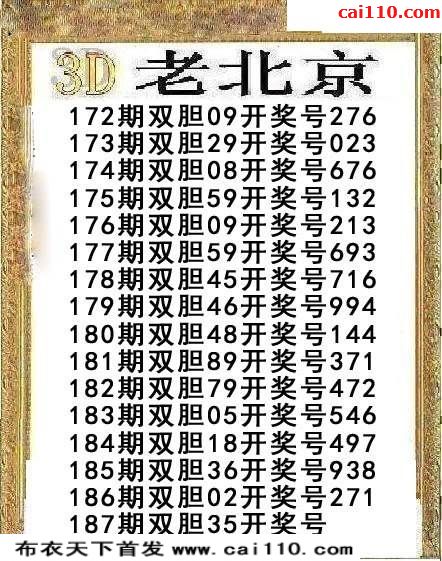 cai110.com
3D 老北京
172期双胆09开奖号276
173期双胆29开奖号023
174期双胆08开奖号676
175期双胆59开奖号132
176期双胆09开奖号213
177期双胆59开奖号693
178期双胆45开奖号716
179期双胆46开奖号994
180期双胆48开奖号144
181期双胆89开奖号371
182期双胆79开奖号472
183期双胆05开奖号546
184期双胆18开奖号497
185期双胆36开奖号938
186期双胆02开奖号271
187期双胆35开奖号
布衣天下首发 www.cai110.com